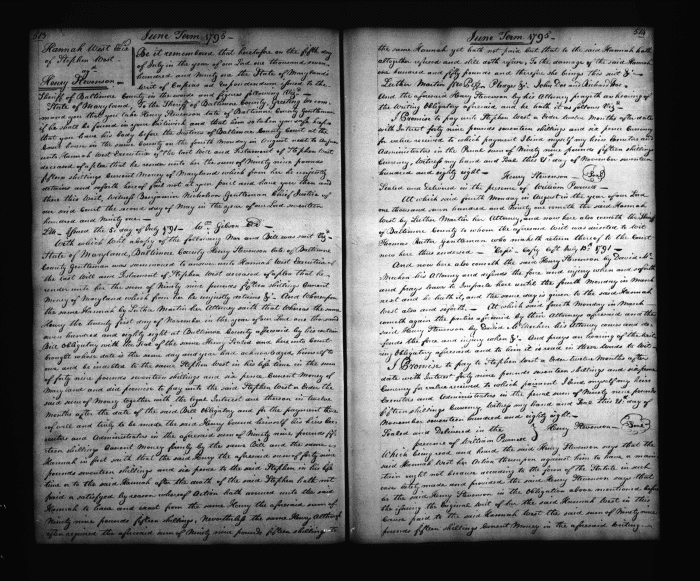 513
June Term 1795
Hannah West Exx
of Stephen West
vs
Henry Stevenson
Be it remembered that heretofore on the fifth day
of July in the year of our Lord one thousand seven
hundred and Ninety one the State of Maryland's
Writ of Capias ad respondendum issued to the
Sheriff of Baltimore County in these words and figures following Viz.
State of Maryland, To the Sheriff of Baltimore County Greeting we com-
mand you that you take Henry Stevenson late of Baltimore County Gentleman
if he shall be found in your Bailiwick and him as taken you safe keep
that you have his Body before the Justices of Baltimore County Court at the
Court house in the same County on the first Monday in August next to answer
unto Hannah West Executrix of the last Will and Testament of Stephen West
deceased of a plea that he render unto her the sum of Ninety nine pounds
fifteen shillings Current Money of Maryland which from her he unjustly
detains and so forth hereof fail not at your peril and have you there and
then this Writ, Witness Benjamin Nicholson Gentleman Chief Justice of
our said Court the second day of May in the year of our Lord seventeen
hundred and Ninety one
Issued the 5 day of July 1791 Wm Gibson Clk
With which Writ a Copy of the following Nar and Bill was sent Viz
State of Maryland, Baltimore County Henry Stevenson late of Baltimore
County Gentleman was summoned to answer unto Hannah West Executrix of
the last Will and Testament of Stephen West deceased of a plea that he
render unto her the sum of Ninety nine pounds fifteen shillings Current
Money of Maryland which from her he unjustly detains &c. And Whereupon
the same Hannah by Luther Martin her Attorney said that whereas the same
Henry the twenty first day of November in the year of our Lord one thousand
hundred and eighty eight at Baltimore County aforesaid by his certain
Bill Obligatory with the Seal of the same Henry Sealed and here into Court
brought whose date is the same day and year had acknowledged himself to
owe and be indebted to the same Stephen West in his life time in the sum
of forty nine pounds seventeen shillings and six pence Current Money of
Maryland and did promise to pay unto the said Stephen West or Order the
said sum of Money together with the legal Interest due thereon in twelve
Months after the date of the said Bill Obligatory and for the payment there-
of well and truly to be made the said Henry bound himself his heirs Exe-
cutors and Administrators in the aforesaid sum of Ninety nine pounds fif-
teen shillings Current Money firmly by the same Bill and the same
Hannah in fact saith that the said Henry the aforesaid sum of forty nine
pounds seventeen shillings and six pence to the said Stephen in his life
time or to the said Hannah after the death of the said Stephen hath not
paid or satisfied by reason whereof Action hath accrued unto the said
Hannah to have and exact from the same Henry the aforesaid sum of
Ninety nine pounds fifteen shillings, Nevertheless the same Henry Although
often required the aforesaid sum of Ninety nine pounds fifteen shillings to
June Term 1795
514
the same Hannah yet hath not paid but that to the said Hannah hath
altogether refused and still doth refuse, To the damage of the said Hannah
one hundred and fifty pounds and therefore she brings this suit &c.
Luther Martin Pledges &c. John Doe and Richard Roe
And the aforesaid Henry Stevenson by his Attorney prayeth an hearing of
the Writing Obligatory aforesaid and he hath it as follows Viz
I Promise to pay unto Stephen West or Order twelve Months after date
with Interest forty nine pounds seventeen shillings and six pence Currency
for value received to which payment I bind myself my heirs Executors and
Administrators in the Penal sum of Ninety nine pounds fifteen shillings
Currency, Witness my hand and Seal this 21 day of November seventeen
hundred and eighty eight
Henry Stevenson Seal
Sealed and Delivered in the presence of William Parnell
At which said fourth Monday in August in the year of our Lord
one thousand seven hundred and Ninety one cometh the said Hannah
West by Luther Martin her Attorney, and now here also cometh the Sheriff
of Baltimore County to whom the aforesaid Writ was directed to Wit
Thomas Rutter Gentleman who maketh return thereof to the Court
now here thus endorsed
And now here also cometh the said Henry Stevenson by David Mc
Mechen his Attorney and defends the force and injury when and so forth
and prays leave to Imparle here until the fourth Monday in March
next and he hath it, and the same day is given to the said Hannah
West also and so forth. At which said fourth Monday in March
cometh again the parties aforesaid by their Attorneys aforesaid and the
said Henry Stevenson by David McMechen his Attorney comes and de-
fends the force and injury when &c. And prays an hearing of the Writ-
ing Obligatory aforesaid and to him it is read in these words to Wit
I Promise to pay to Stephen West or Order twelve Months after
date with Interest forty nine pounds seventeen shillings and six pence
Currency for value received to which payment I bind myself my heirs
Executors and Administrators in the penal sum of Ninety nine pounds
fifteen shillings Currency, Witness my hand and Seal this 21 day of
November seventeen hundred and eighty eight
Sealed and Delivered in the
Henry Stevenson Seal
presence of William Parnell
Which being read and heard the said Henry Stevenson says that the
said Hannah West her Action thereof against him to have or main-
tain ought not because according to the form of the Statute in such
case lately made and provided the said Henry Stevenson says that
he the said Henry Stevenson in the Obligation above mentioned before
the issuing the Original Writ of her the said Hannah West in this
Cause paid to the said Hannah West the said sum of Ninety nine
pounds fifteen shillings Current Money in the aforesaid Writing